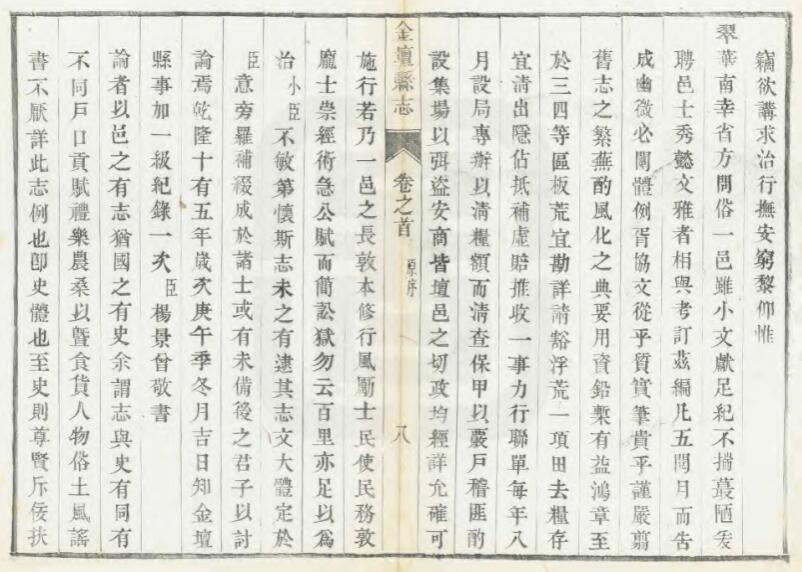 竊欲講求治行撫安窮黎仰惟
翠華南幸省方問俗一邑雖小文獻足紀不揣蕞陋爰
聘邑士秀懿文雅者相與考訂茲編凡五閱月而告
成幽微必闡體例胥協文從乎質實筆貴乎謹嚴翦
舊志之繁蕪酌風化之典要用資鉛槧有益鴻章至
於三四等區板荒宜勘詳請豁浮荒一項田去糧存
宜清出隱佔抵補虛賠推收一事力行聯單每年八
月設局專辦以清糧額而清查保甲以覈戶稽匪酌
設集場以弭盜安商皆壇邑之切政均經詳允確可
金壇縣志 卷之首 原序 八
施行若乃一邑之長敦本修行風勵士民使民務敦
龐士崇經術急公賦而簡訟獄勿云百里亦足以為
治小臣不敏第懷斯志未之有逮其志文大體定於
臣意旁羅補綴成於諸士或有未備後之君子以討
論焉乾隆十有五年歲次庚午季冬月吉日知金壇
縣事加一級紀錄一次臣楊景曾敬書
論者以邑之有志猶國之有史余謂志與史有同有
不同戶口貢賦禮樂農桑以暨食貨人物俗土風謠
書不厭詳此志例也卽史體也至史則尊賢斥佞扶